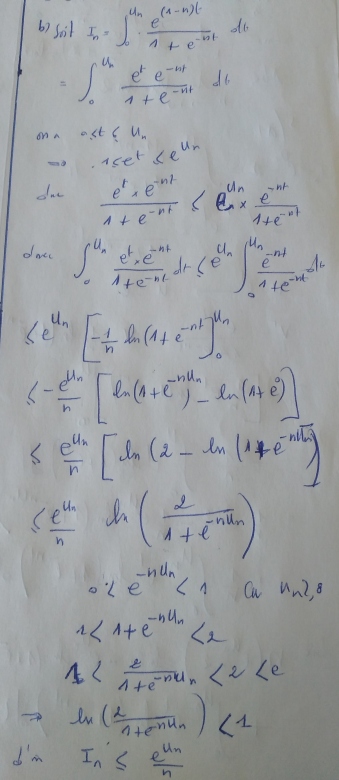 b) Soit I_n = ∫_0^{U_n} e^{(1-n)t} / (1 + e^{-nt}) dt
= ∫_0^{U_n} e^t e^{-nt} / (1 + e^{-nt}) dt
on a 0 ≤ t ≤ U_n
⇒ 1 ≤ e^t ≤ e^{U_n}
donc e^t × e^{-nt} / (1 + e^{-nt}) ≤ e^{U_n} × e^{-nt} / (1 + e^{-nt})
donc ∫_0^{U_n} e^t × e^{-nt} / (1 + e^{-nt}) dt ≤ e^{U_n} ∫_0^{U_n} e^{-nt} / (1 + e^{-nt}) dt
≤ e^{U_n} [-1/n ln(1 + e^{-nt})]_0^{U_n}
≤ -e^{U_n}/n [ln(1 + e^{-nU_n}) - ln(1 + e^0)]
≤ e^{U_n}/n [ln(2 - ln(1 + e^{-nU_n})]
≤ e^{U_n}/n ln(2 / (1 + e^{-nU_n}))
0 < e^{-nU_n} < 1 Car U_n ≥ 0
1 < 1 + e^{-nU_n} < 2
1 < 2 / (1 + e^{-nU_n}) < 2 < e
⇒ ln(2 / (1 + e^{-nU_n})) < 1
d'où I_n ≤ e^{U_n}/n